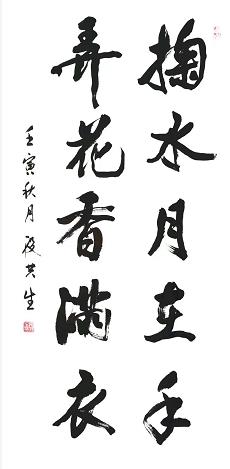 掬水月在手
弄花香满衣
壬寅秋月 段共生